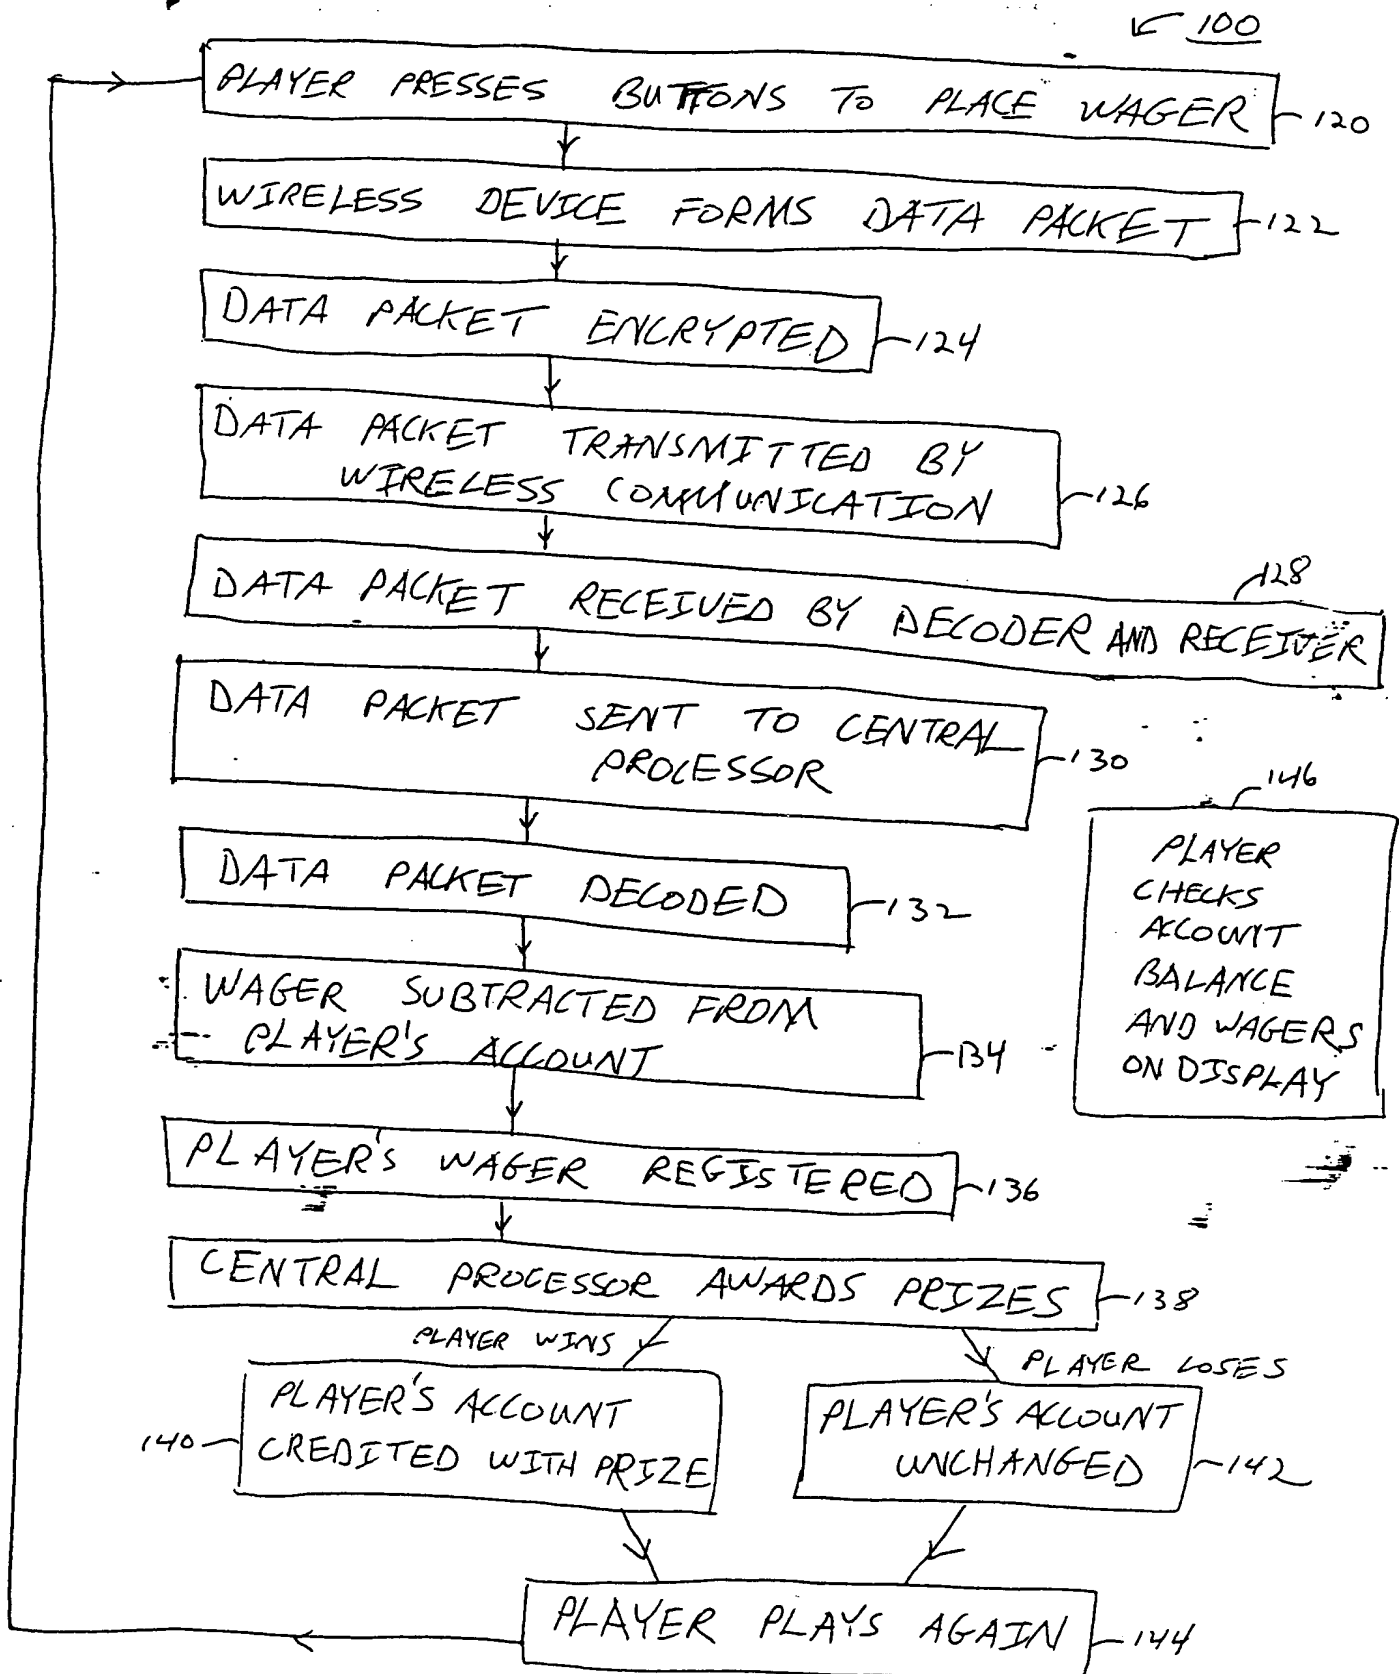 100
PLAYER PRESSES BUTTONS TO PLACE WAGER
120
WIRELESS DEVICE FORMS DATA PACKET
122
DATA PACKET ENCRYPTED
124
DATA PACKET TRANSMITTED BY
WIRELESS COMMUNICATION
126
128
DATA PACKET RECEIVED BY DECODER AND RECEIVER
DATA PACKET SENT TO CENTRAL
PROCESSOR
130
146
PLAYER
CHECKS
ACCOUNT
BALANCE
AND WAGERS
ON DISPLAY
DATA PACKET DECODED
132
WAGER SUBTRACTED FROM
PLAYER'S ACCOUNT
134
PLAYER'S WAGER REGISTERED
136
CENTRAL PROCESSOR AWARDS PRIZES
138
PLAYER WINS
PLAYER LOSES
PLAYER'S ACCOUNT
CREDITED WITH PRIZE
140
PLAYER'S ACCOUNT
UNCHANGED
142
PLAYER PLAYS AGAIN
144